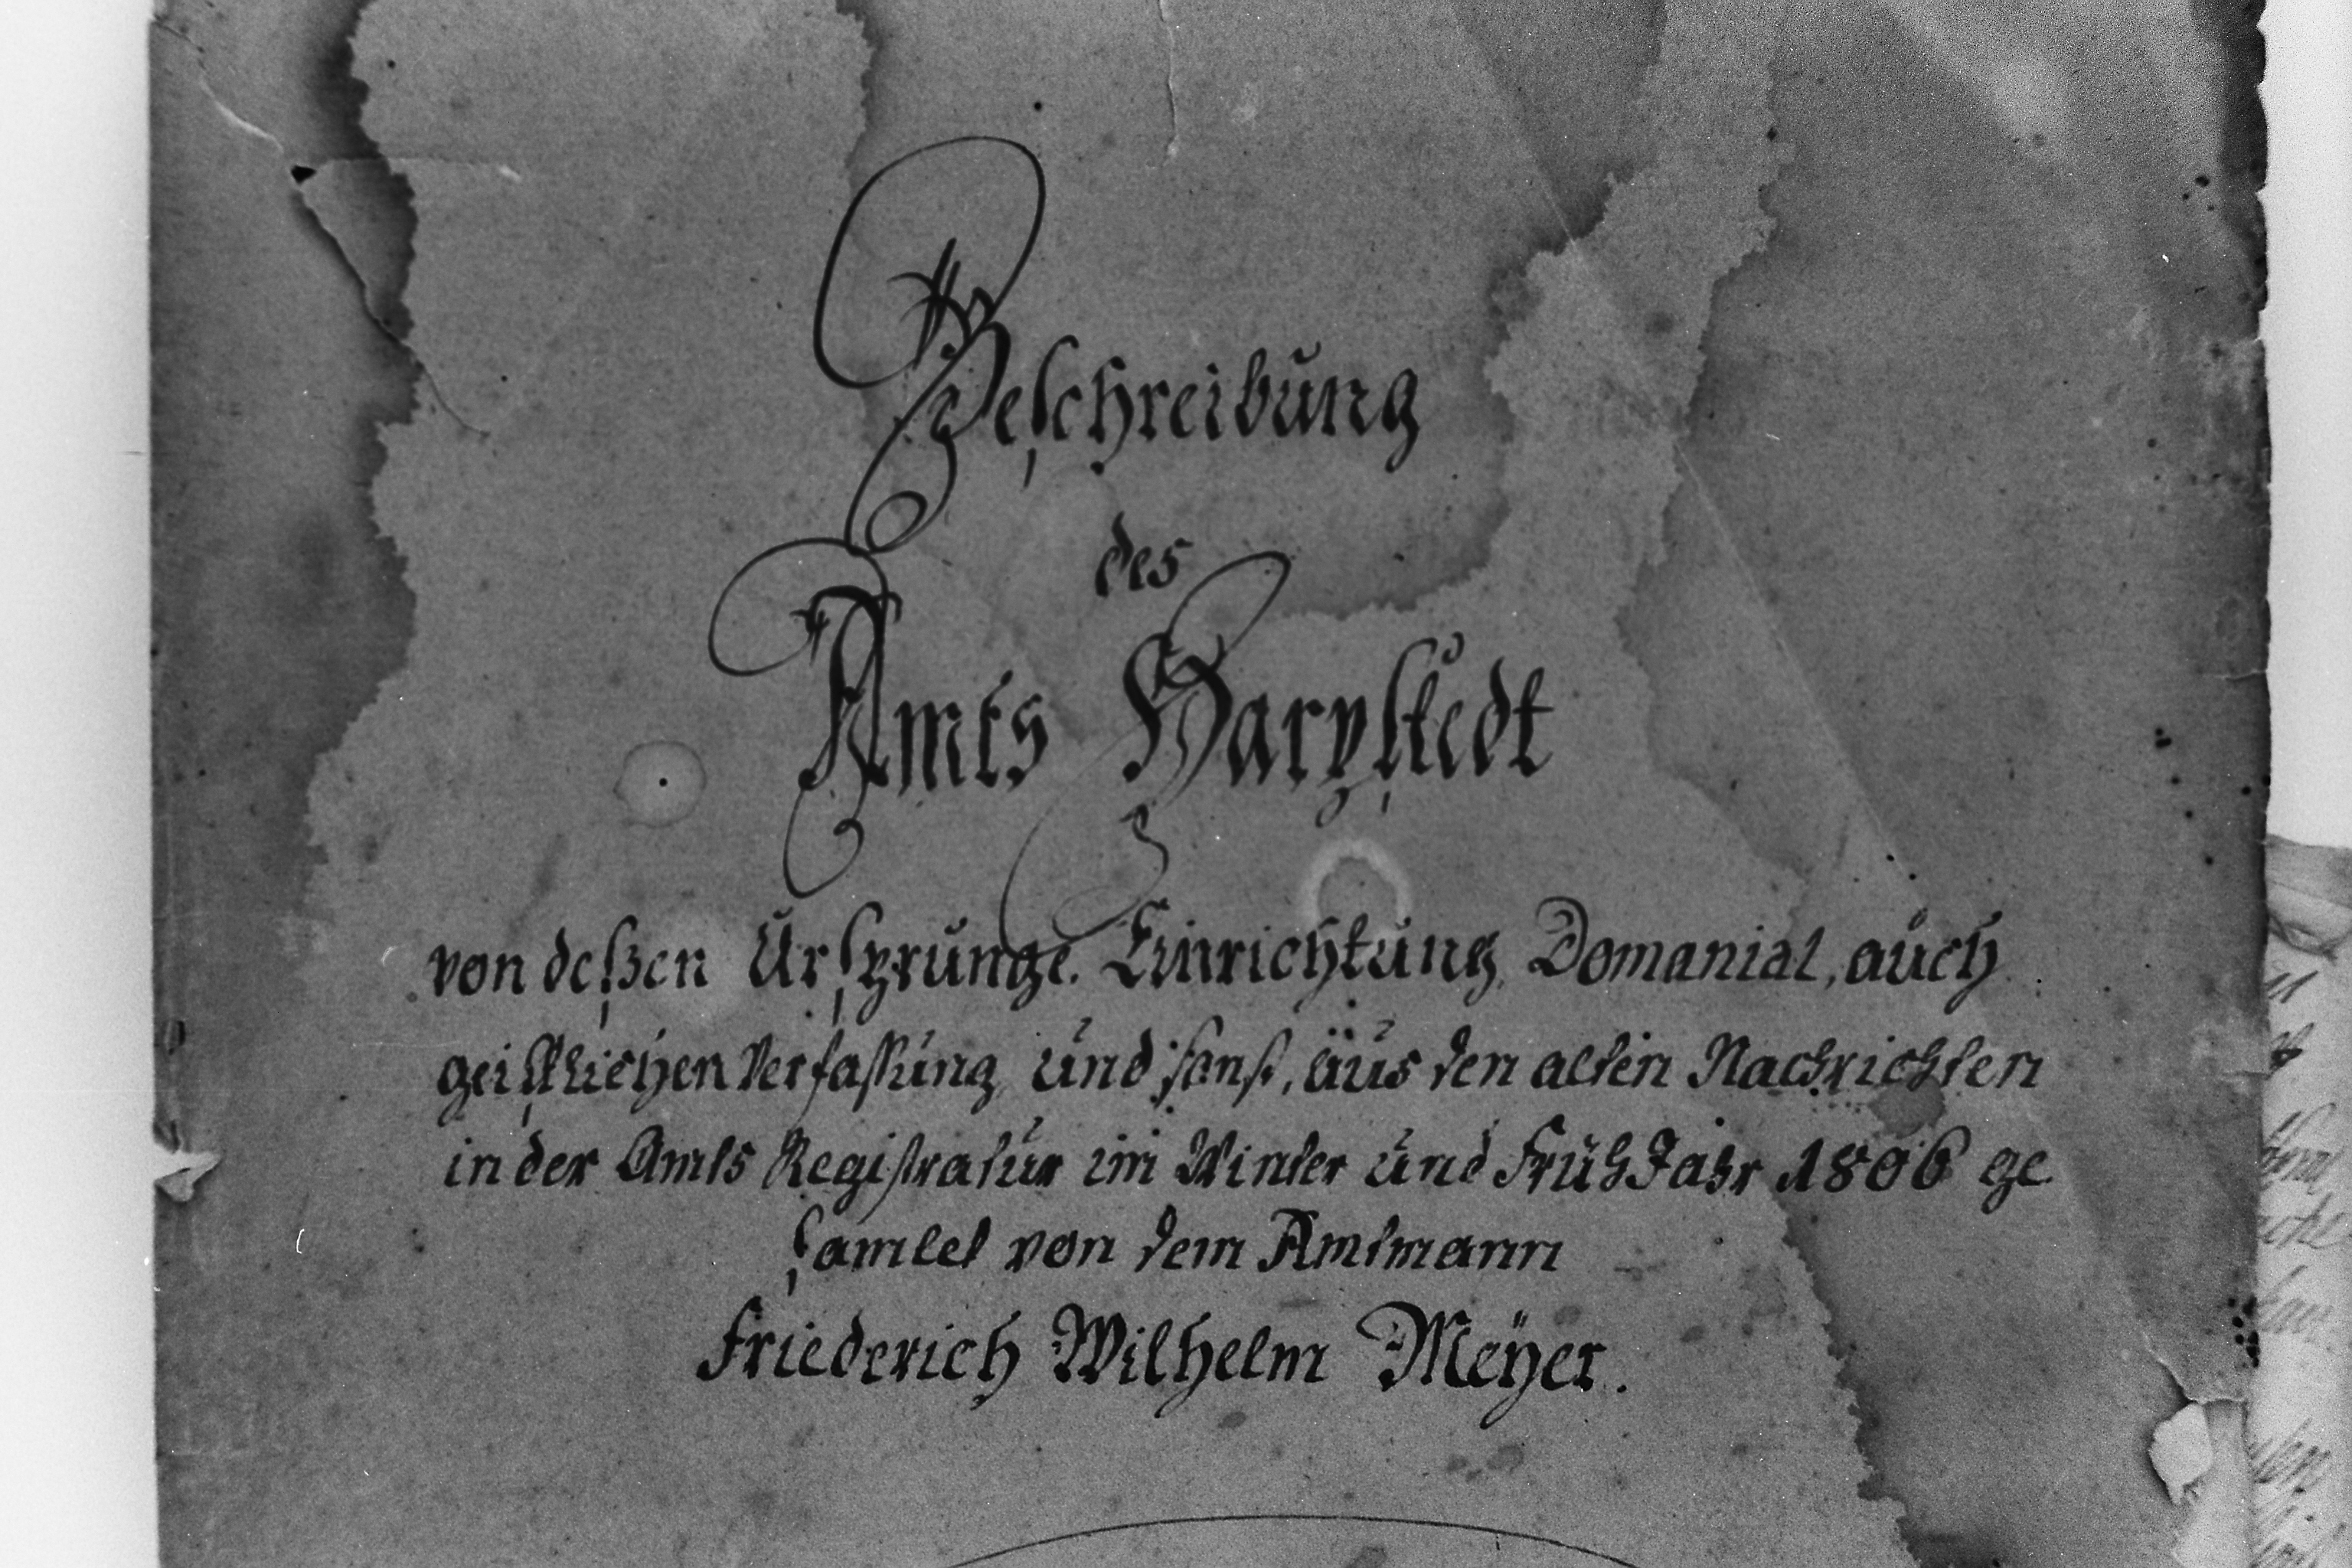 Beschreibung
des
Amts Harpstedt
von deßen Ursprunge, Einrichtung, Domanial, auch
geistlichen Verfassung und sonst, aus den alten Nachrichten
in der Amts Registratur im Winter und FrühJahr 1806 ge
samlet von dem Amtmann
Friederich Wilhelm Meÿer.